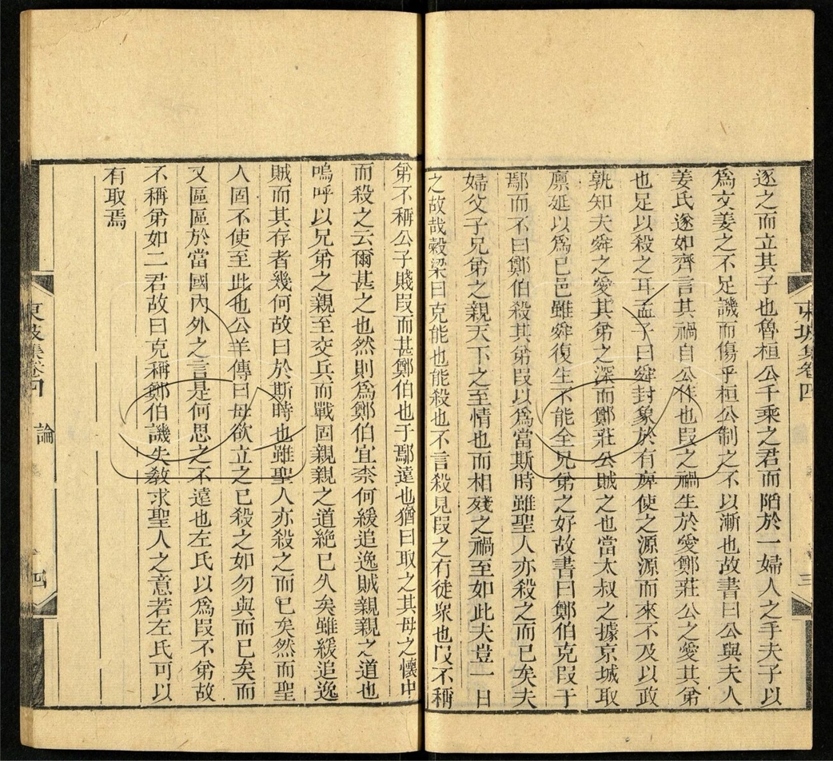 東坡集卷四
三
逐之而立其子也魯桓公千乘之君而陷於一婦人之手夫子以
爲文姜之不足譏而傷乎桓公制之不以漸也故書曰公與夫人
姜氏遂如齊言其禍自公作也段之禍生於愛鄭莊公之愛其弟
也足以殺之耳孟子曰舜封象於有庳使之源源而來不及以政
孰知夫舜之愛其弟之深而鄭莊公賊之也當太叔之據京城取
廪延以爲已邑雖舜復生不能全兄弟之好故書曰鄭伯克段于
鄢而不曰鄭伯殺其弟段以爲當斯時雖聖人亦殺之而已矣夫
婦父子兄弟之親天下之至情也而相殘之禍至如此夫豈一日
之故哉穀梁曰克能也能殺也不言殺見段之有徒衆也段不稱
弟不稱公子賤段而甚鄭伯也于鄢遠也猶曰取之其母之懷中
而殺之云爾甚之也然則爲鄭伯宜柰何緩追逸賊親親之道也
嗚呼以兄弟之親至交兵而戰固親親之道絶已久矣雖緩追逸
賊而其存者幾何故曰於斯時也雖聖人亦殺之而已矣然而聖
人固不使至此也公羊傳曰母欲立之已殺之如勿與而已矣而
又區區於當國內外之言是何思之不遠也左氏以爲段不弟故
不稱弟如二君故曰克稱鄭伯譏失敎求聖人之意若左氏可以
有取焉
東坡集卷四
論
四